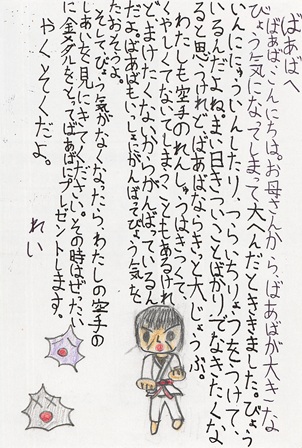 ばあばへ
ばあば、こんにちは。お母さんから、ばあばが大きな
びょう気になってしまって大へんだとききました。びょう
いんににゅういんしたり、つらいちりょうをうけて
いるんだよね。まい日きついことばかりでなきたくな
ると思うけれど、ばあばならきっと大じょうぶ。
わたしも空手のれんしゅうはきつくて、
くやしくてないてしまうこともあるけれ
ど、まけたくないからがんばっているん
だよ。ばあばもいっしょにがんばってびょう気を
たおそうよ。
そしてびょう気がなくなったら、わたしの空手の
しあいを見にきてください。その時はぜったい
に金メダルをとってばあばにプレゼントします。
やくそくだよ。
れい